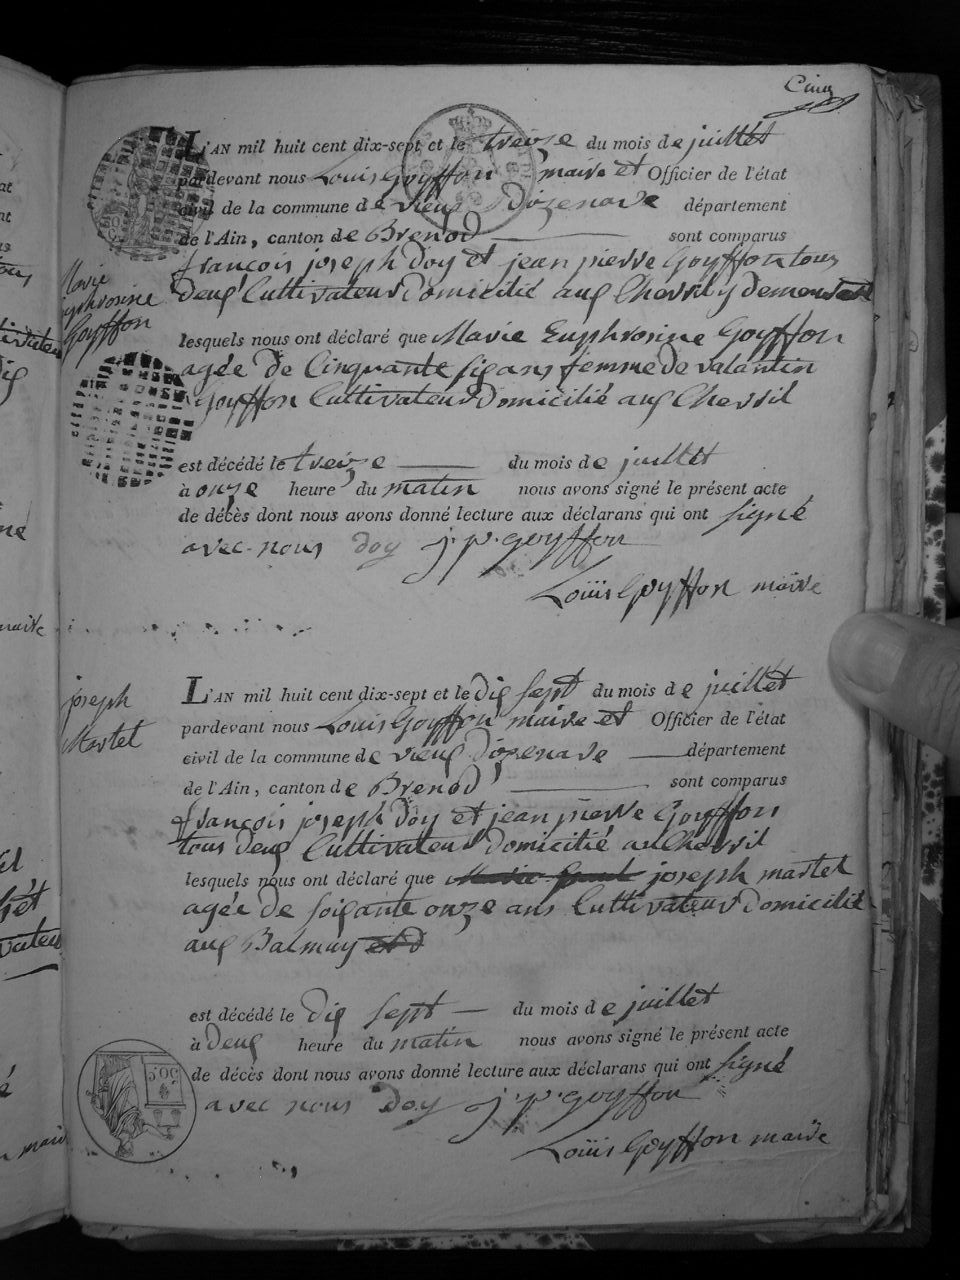 Cinq
L'AN mil huit cent dix-sept et le treize du mois de juillet
pardevant nous Louis Goyffon maire et Officier de l'état
civil de la commune de vieux Dizenave département
de l'Ain, canton de Brenod sont comparus
françois joseph Doy et jean pierre Goyffon tous
deux Cultivateur Domicilié aux Chevril y demeurant
Marie
Euphrosine
Goyffon
lesquels nous ont déclaré que Marie Euphrosine Goyffon
agée de Cinquante six ans femme de valantin
Goyffon Cultivateur Domicilié aux Chevril
est décédé le treize du mois de juillet
à onze heure du matin nous avons signé le présent acte
de décès dont nous avons donné lecture aux déclarans qui ont signé
avec nous Doy j. p. goyffon
Louis Goyffon maire
joseph
Martel
L'AN mil huit cent dix-sept et le Dix sept du mois de juillet
pardevant nous Louis Goyffon maire et Officier de l'état
civil de la commune de vieux dizenave département
de l'Ain, canton de Brenod sont comparus
françois joseph Doy et jean pierre Goyffon
tous deux Cultivateur Domicilié au Chevril
lesquels nous ont déclaré que joseph martel
agée de soixante onze ans Cultivateur Domicilié
aux Balmay
est décédé le Dix sept du mois de juillet
à Deux heure du matin nous avons signé le présent acte
de décès dont nous avons donné lecture aux déclarans qui ont signé
avec nous Doy j. p. goyffon
Louis Goyffon maire
50 C